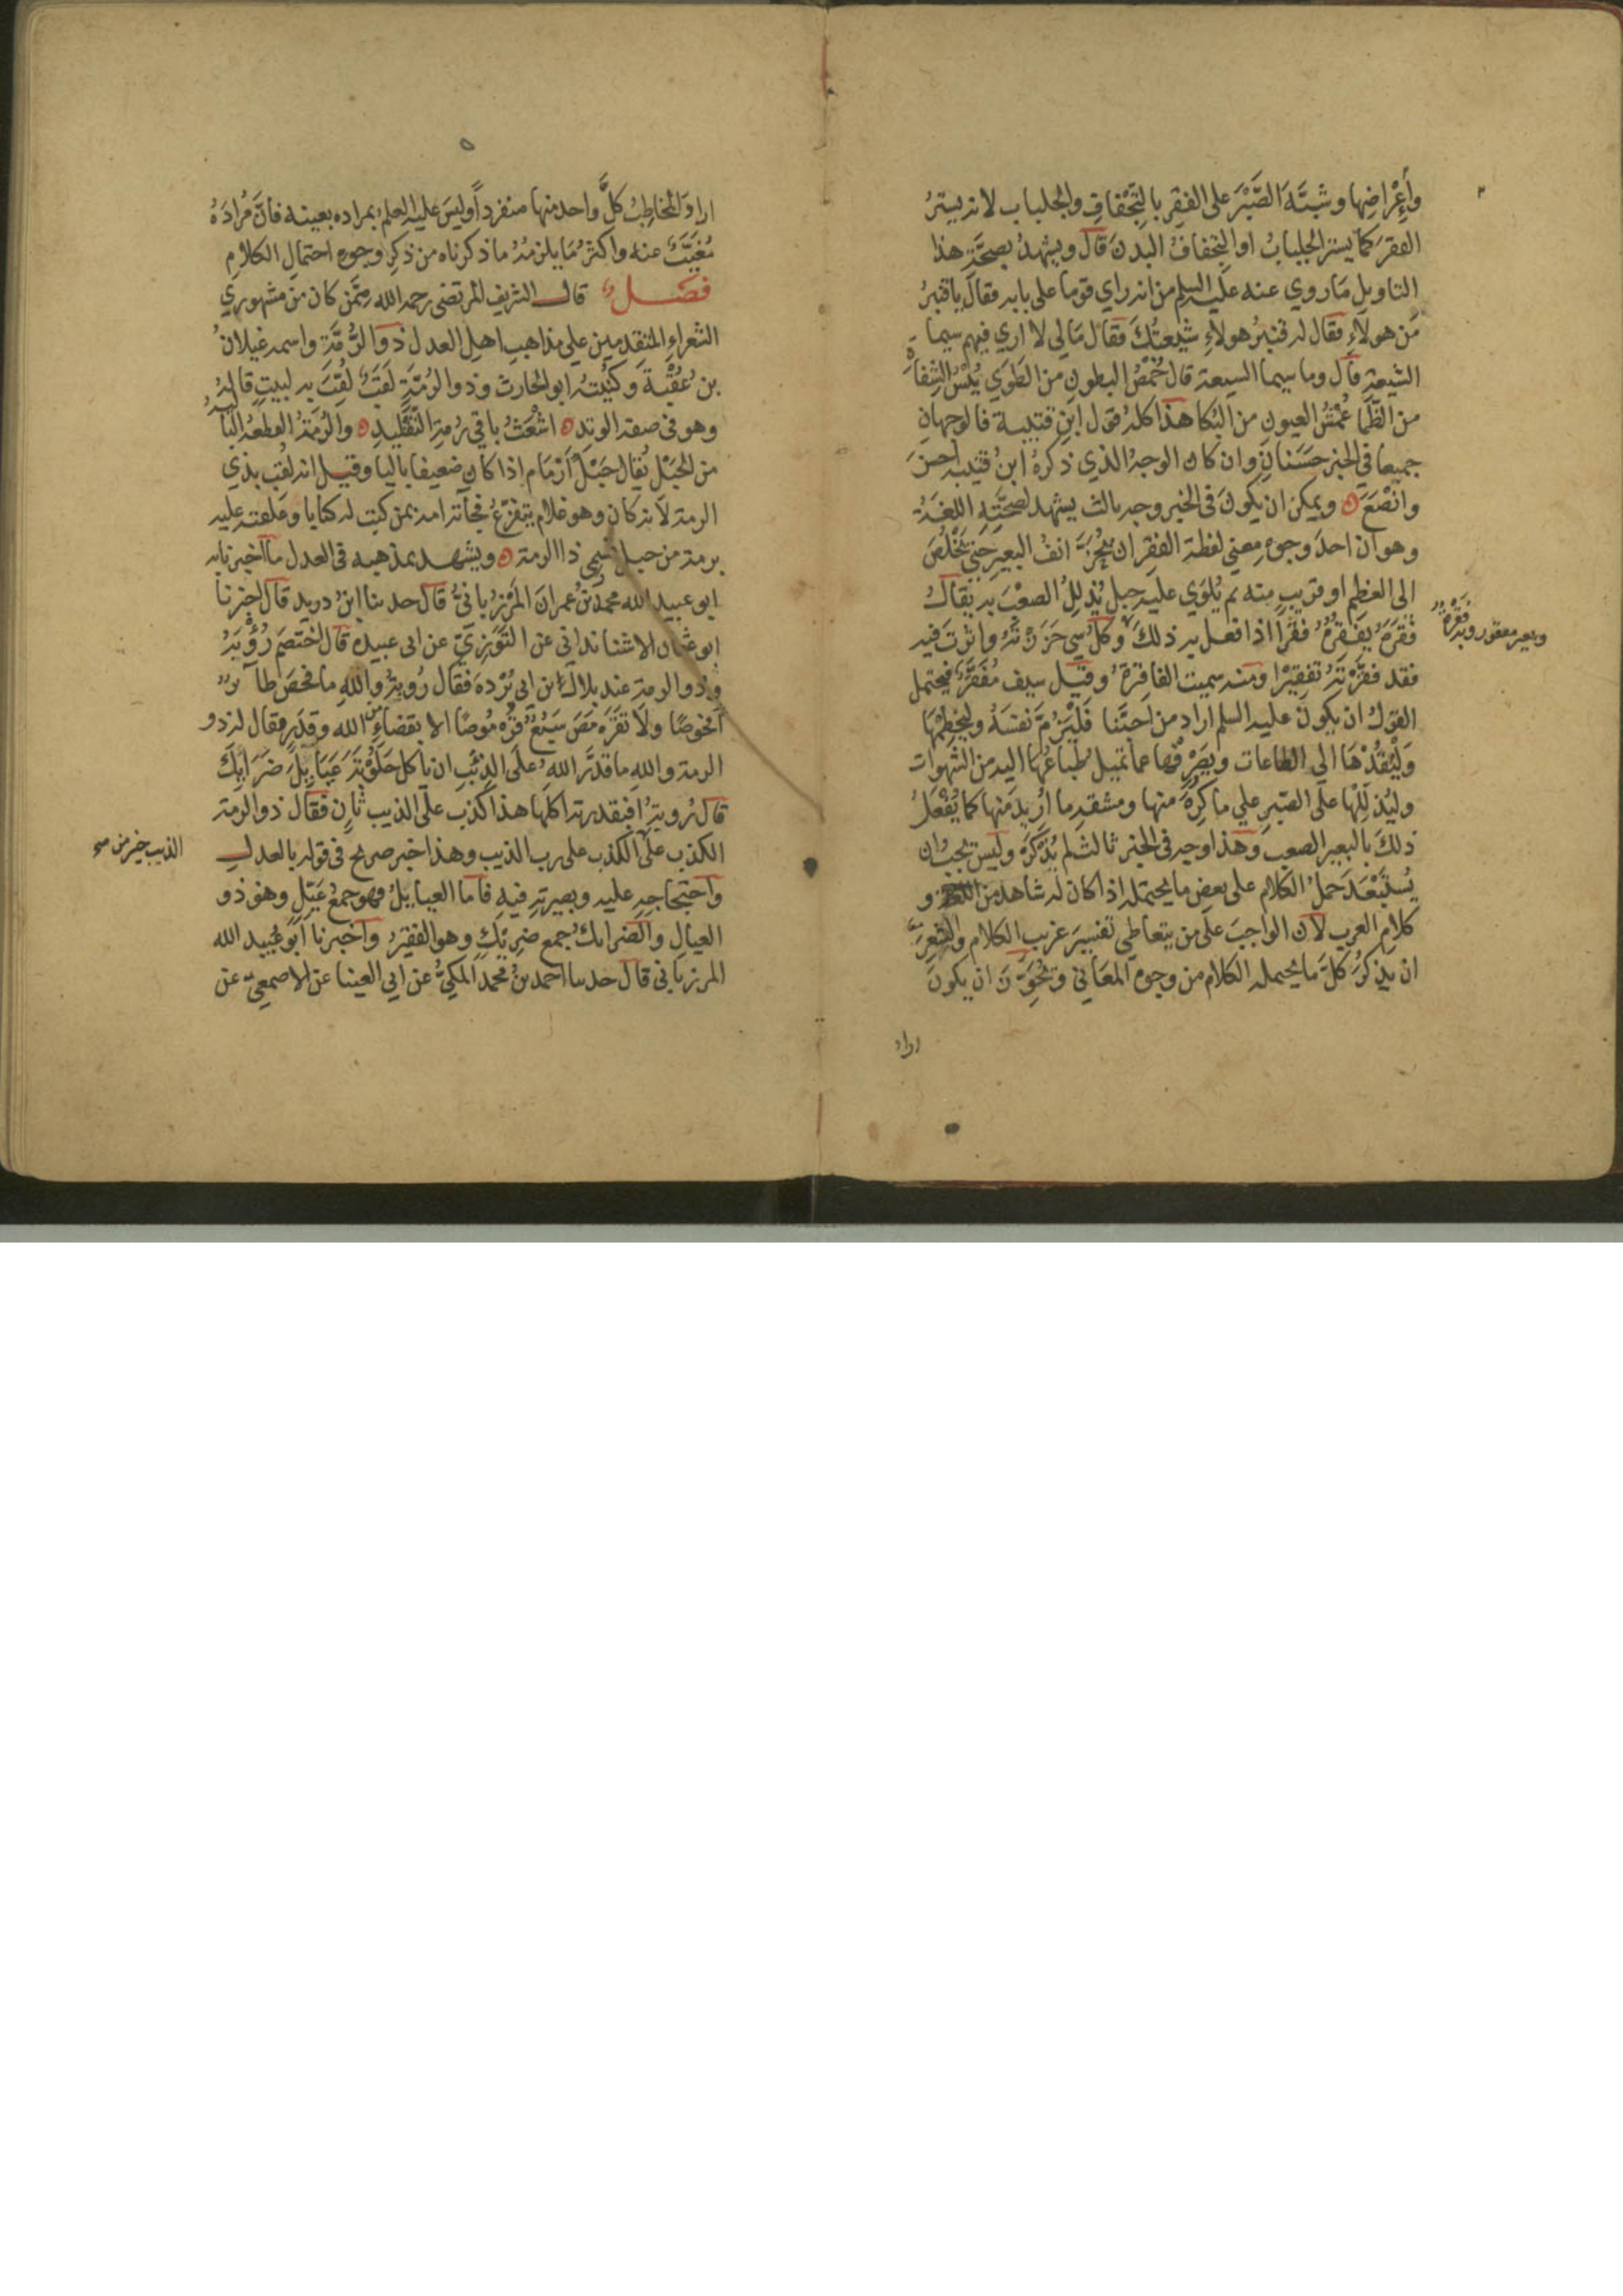 وأَعْراضِها وشبَّهَ الصَّبْرَ على الفقِر بالتِّجْفافِ والجلباب لانه يسترُ
الفقرَ كما يستر الجلبابُ او التجفافُ البدنَ قال ويشهدُ بصحَّةِ هذا
التاويلِ مَا روي عنه عليه السلم من انه راي قوما على بابه فقال يا قنبرُ
مَن هولاءِ فقال له قنبرُ هولاءِ شيعتُكَ فقال مَا لي لا اري فيهم سيما
الشيعةِ قال وما سيما الشيعة قال خُمْصُ البطونِ من الطَوي يُبْسُ الشِفاهِ
من الظَّمَا عُمْشُ العيونِ من البُكا هذا كله قول ابن قتيبة فالوجهانِ
جميعا في الخبرِ حَسَنانِ وان كان الوجهُ الذي ذكرهُ ابنُ قتيبه احسنَ
وانْصَعَ ويمكن ان يكونَ في الخبر وجه ثالث يشهد لصحَّتِهِ اللغَةُ
وهو ان احدَ وجوهِ معني لفظة الفقرِ ان يُحَزَّ انفُ البعيرِ حَتي يَخْلُصَ
الى العَظْمِ او قريبٍ منه ثم يُلوَى عليه حبل يُذَلِلُ الصعْبَ به يقال
فقَرَهُ يفْقِرُهُ فقْراً اذا فعل به ذلكَ وكلُّ شيٍ حَزَزْتَهُ واثرتَ فيه
وبعير مفقور وبه فَقْرَةٌ
فقد فقَّرْتَهُ تفقيْرا ومنه سميت الفاقِرةُ وقيل سيف مُفَقَّرٌ فيحتمل
القولُ ان يكون عليه السلم اراد من احبَّنا فَلْيَزُمَّ نفسَهُ وليَخطِمْهَا
وَلْيَقُدْهَا الي الطاعات ويصْرِفْها عما تميل طباعُها اليه من الشهوات
وليُذَلِلْها على الصبرِ علي ما كَرِهَ منها ومشقه ما اُرِيدَ منها كما يُفْعَلُ
ذلكَ بالبعير الصعب وَهَذا وجه في الخبر ثالث لم يُذْكَرْ وليس يجبُ ان
يُستَبْعَدَ حَمْلُ الكلام على بعضِ ما يحتمله اذا كان له شاهد من اللغة و
كلامِ العربِ لان الواجبَ على من يتعاطي تفسيرَ غريب الكلام والشعرِ
ان يذكرَ كلَّ ما يحتمله الكلام من وجوه المعَاني ويُجَوِّزَ ان يكونَ
اراد
ارادَ المُخاطِبُ كلَّ واحد منها منفرداً وليسَ عليه العلمُ بمراده بعينه فانَّ مُرادَهُ
مُغيَّبٌ عنه واكثرُ مَا يلزمُهُ ما ذكرناه من ذكر وجوه احتمالِ الكلام
فصل قال الشريف المرتضى رحمه الله ومِمَّن كان من مشهوري
الشعراءِ المتقدمين علي مذاهبِ اهلِ العدل ذو الرُمَّةِ واسمه غيلانُ
بن عُقْبةَ وكنيتُهُ ابو الحارث وذو الرُمَّةِ لَقَبٌ لُقِبَ به لبيتٍ قالهُ
وهو فى صفة الوتدِ اشْعَثُ باقي رُمةِ التَقْليدِ والرُّمَةُ القطعةُ الباليةُ
من الحَبْلِ يُقالُ حَبْلٌ اَرْمَام اذا كان ضعيفا باليا وقيل انه لُقِبَ بذي
الرمة لانه كان وهو غلام يتفزَّعُ فجآءته امه بمن كتبَ له كتابا وعَلقته عليه
برمة من حبل فسُمي ذا الرمة ويشهد بمذهبه في العدل ما اخبرنا به
ابو عبيد الله محمدُ بنُ عُمرانَ المَرْزُبانيُّ قال حدثنا ابنُ دريد قال اخبرنا
ابو عثمان الاشنانداني عن التَّوَّزِيّ عن ابى عبيدة قال اختصَم رُؤْبَةُ
وذو الرمة عند بلالِ ابن ابي بُرْدهَ فقال رُوبةُ واللهِ ما فحَصَ طآئرٌ
اُفحُوصًا ولا تقرْمَصَ سَبُعٌ قُرْمُوصًا الا بقضاءٍ من الله وقدَرٍ فقال له ذو
الرمة واللهِ ما قدَّر اللهُ على الذئبِ ان ياكل حَلوْبَةَ عَيَايِلَ ضَرَايِكَ
قال رُوبةُ افبقدرته اكلَها هذا كذب على الذيب ثانٍ فقال ذو الرمة
الكذب على الذيب خير من
الكذب على رب الذيب وهذا خبر صريح فى قوله بالعدل
واحتجاجهِ عليه وبصيرتِهِ فيهِ فاما العيايلُ فهو جمعُ عَيِّلٍ وهو ذو
العيالِ والضرايكُ جمع ضرِيْكٍ وهو الفقيرُ واخبرنا ابو عُبيد الله
المرزباني قال حدثنا احمدُ بنُ محمد المكيُّ عن ابي العينا عن الاصمعيّ عن